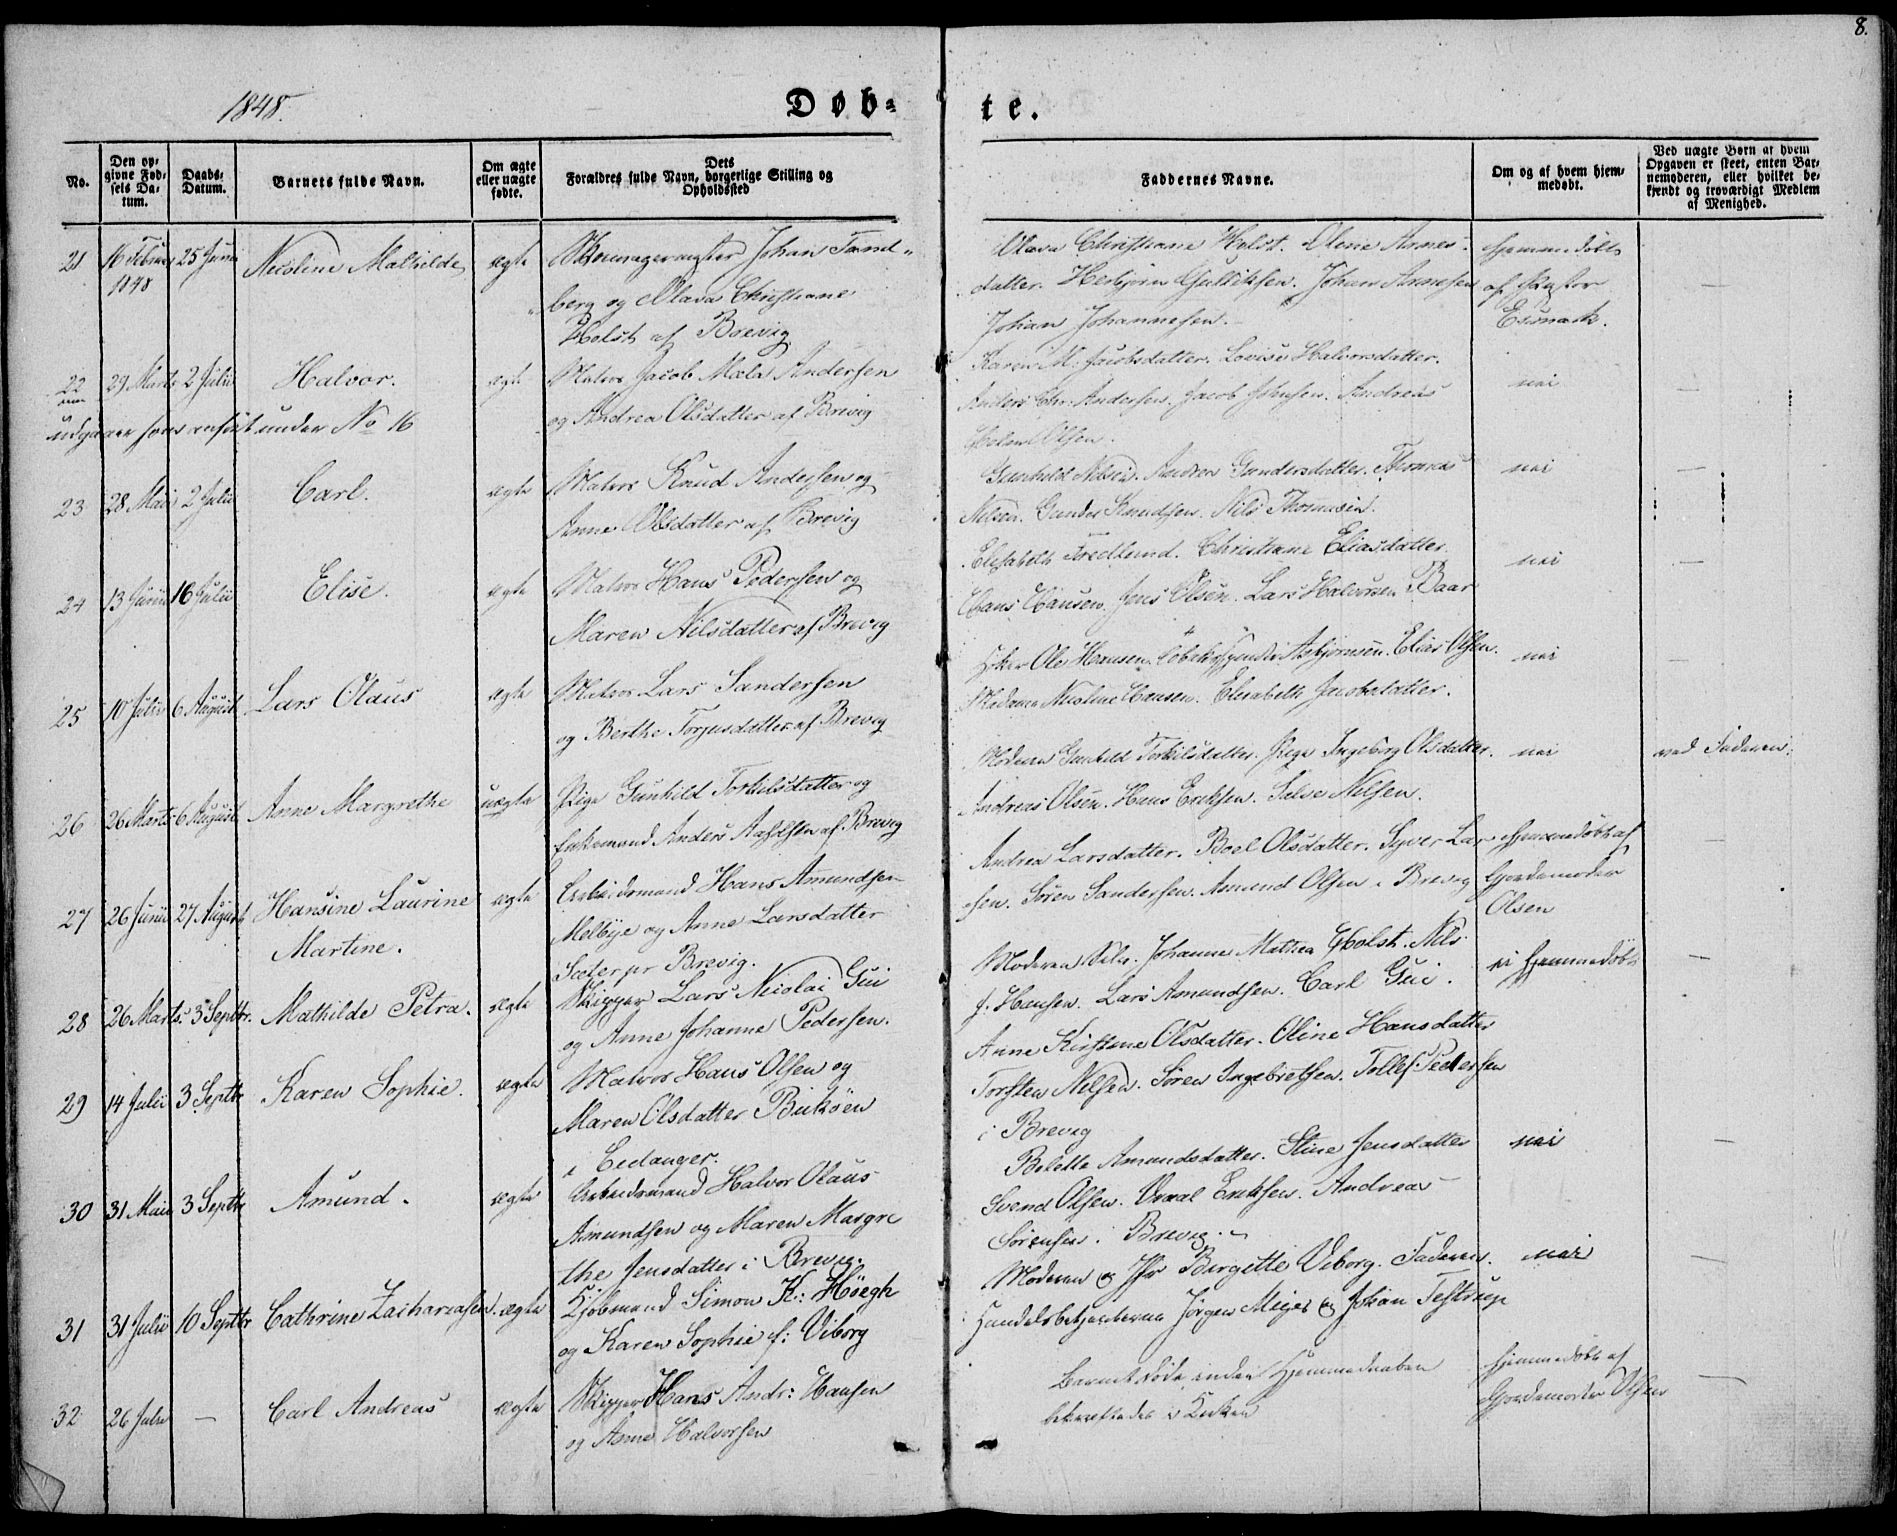 8.
1848.
Døb-
te.
No.
Den op-
givne Fød-
sels Da-
tum.
Daabs-
Datum.
Barnets fulde Navn.
Om ægte
eller uægte
fødte.
Dets
Forældres fulde Navn, borgerlige Stilling og
Opholdssted
Faddernes Navne.
Om og af hvem hjem-
medøbt.
Ved uægte Børn af hvem
Opgaven er skeet, enten Bar-
nemoderen, eller hvilket be-
kjendt og troværdigt Medlem
af Menighed.
21 16 Februar 1848 25 Junii Nicoline Mathilde ægte
Skomagermester Johan Tand-
berg og Olava Christiane
Holst af Brevig
Olava Christiane Holst. Olene Arnes-
datter. Herbjørn Gulliksen. Johan Arnesen
Johan Johannesen.
Hjemmedøbt
af Pastor
Esmark.
22 29 Marts 2 Julii Halvor. ægte
udgaaer som anført under No 16
Matros Jacob Mæla Andersen
og Andrea Olsdatter af Brevig
Karen M. Jacobsdatter. Lovise Halvorsdatter.
Anders Chr. Andersen. Jacob Johnsen. Andreas
Olsen.
nei
23 28 Mai 2 Julii Carl. ægte
Matros Knud Andersen og
Anne Olsdatter af Brevig
Gunhild Nilsen. Andrea Gundersdatter. Thomas
Nilsen. Gunder Knudsen. Nils Thomasen.
nei
24 13 Junii 16 Julii Elise. ægte
Matros Hans Pedersen og
Maren Nilsdatter af Brevig
Elisabeth Fredlund. Christiane Eliasdatter
Hans Hansen. Jens Olsen. Lars Halvorsen Baar
nei
25 10 Julii 6 August Lars Olaus ægte
Matros Lars Sandersen
og Berthe Torjusdatter af Brevig
Ole Hansen. Asbjørnsen. Elias Olsen.
Madame Nicoline Hansen. Elisabeth Jacobsdatter.
nei
26 26 Marts 6 August Anne Margrethe uægte
Pige Gunhild Torkilsdatter og
Enkemand Anders Aslesen af Brevig
Moderen Gunhild Torkilsdatter. Pige Ingeborg Olsdatter.
Andreas Olsen. Hans Eriksen. Salve Nilsen.
nei
ved Faderen.
27 26 Junii 27 August Hansine Laurine
Martine.
ægte
Arbeidsmand Hans Amundsen
Melbye og Anne Larsdatter
Sæter pr Brevig.
Andrea Larsdatter. Boel Olsdatter. Syver Lar-
sen. Søren Sandersen. Amund Olsen i Brevig
Hjemmedøbt af
Gjordemoder
Olsen
28 26 Marts 3 Septbr. Mathilde Petra. ægte
Skipper Lars Nicolai Gui
og Anne Johanne Pedersen.
Moderen selv. Johanne Mathea Holst. Nils
f. Hansen. Lars Amundsen. Carl Gui.
ei hjemmedøbt
29 14 Julii 3 Septbr Karen Sophie. ægte
Matros Hans Olsen og
Maren Olsdatter Bukøen
i Eidanger.
Anne Kirstine Olsdatter. Oline Hansdatter
Torsten Nilsen. Søren Ingebretsen. Tollef Pedersen
i Brevig
30 31 Mai 3 Septbr Amund. ægte
Arbeidsmand Halvor Olaus
Amundsen og Maren Margre
the Jensdatter i Brevig.
Bolette Amundsdatter. Stine Jensdatter
Svend Olsen. Vraal Eriksen. Andreas
Sørensen i Brevig.
nei
31 31 Julii 10 Septbr Cathrine Zachariasen. ægte
Kjøbmand Simon K: Höegh
og Karen Sophie f: Viborg
Moderen og Jfr Birgette Viborg. Faderen.
Handelsbetjenterne Jørgen Meyer og Johan Testrup
nei
32 26 Julii — Carl Andreas ægte
Skipper Hans Andr: Hansen
og Anne Halvorsen
Barnet døde inden Hjemmedaaben
bekræftedes i Kirken
Hjemmedøbt af
Gjordemoder Olsen